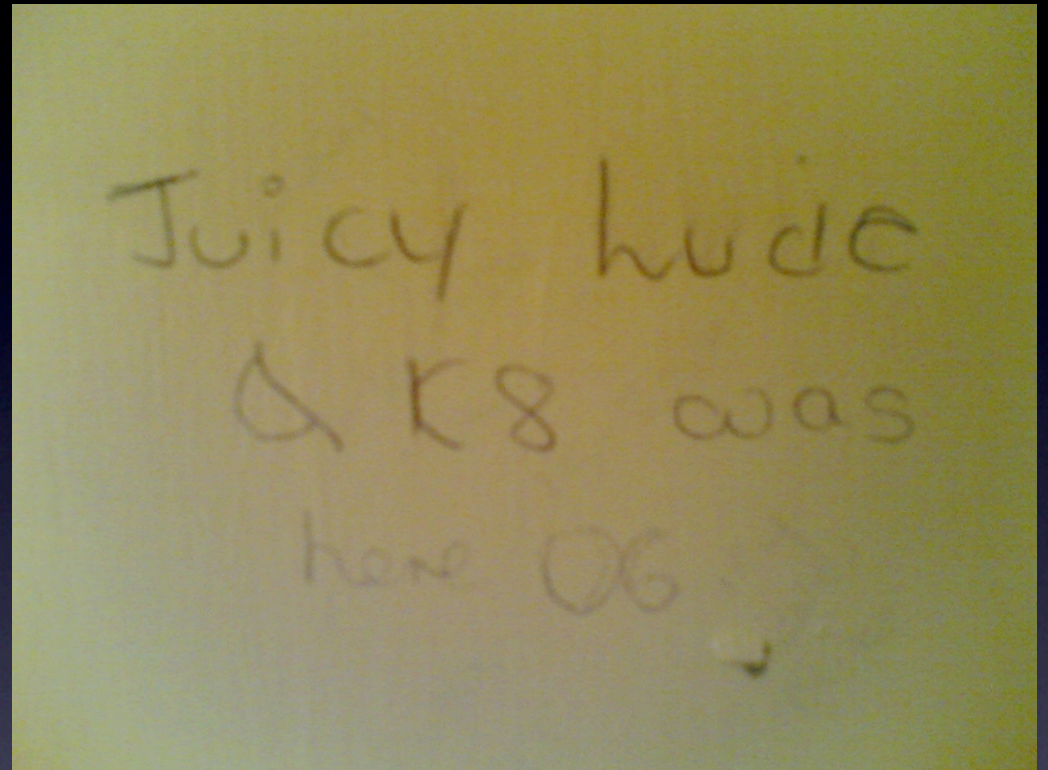 Juicy Lude
& K8 was
here 06